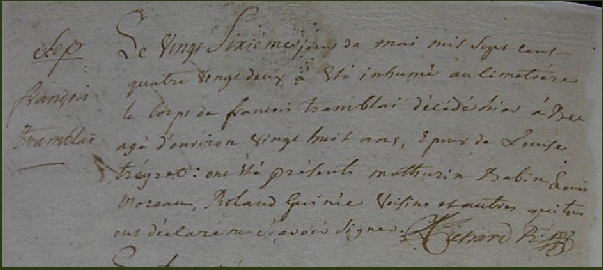 Sep
françois
tramblai
Le Vingt Sixieme jour de mai mil Sept cent
quatre vingt deux a été inhumé au Cimetiére
le Corps de francois tramblai décédé hier á
agé d'environ Vingt huit ans, Epoux de Louise
trégret: ont été présents mathurin Babin Louis
moreau, Roland Guinée Voisins et autres qui tous
ont déclaré ne scavoir Signer.